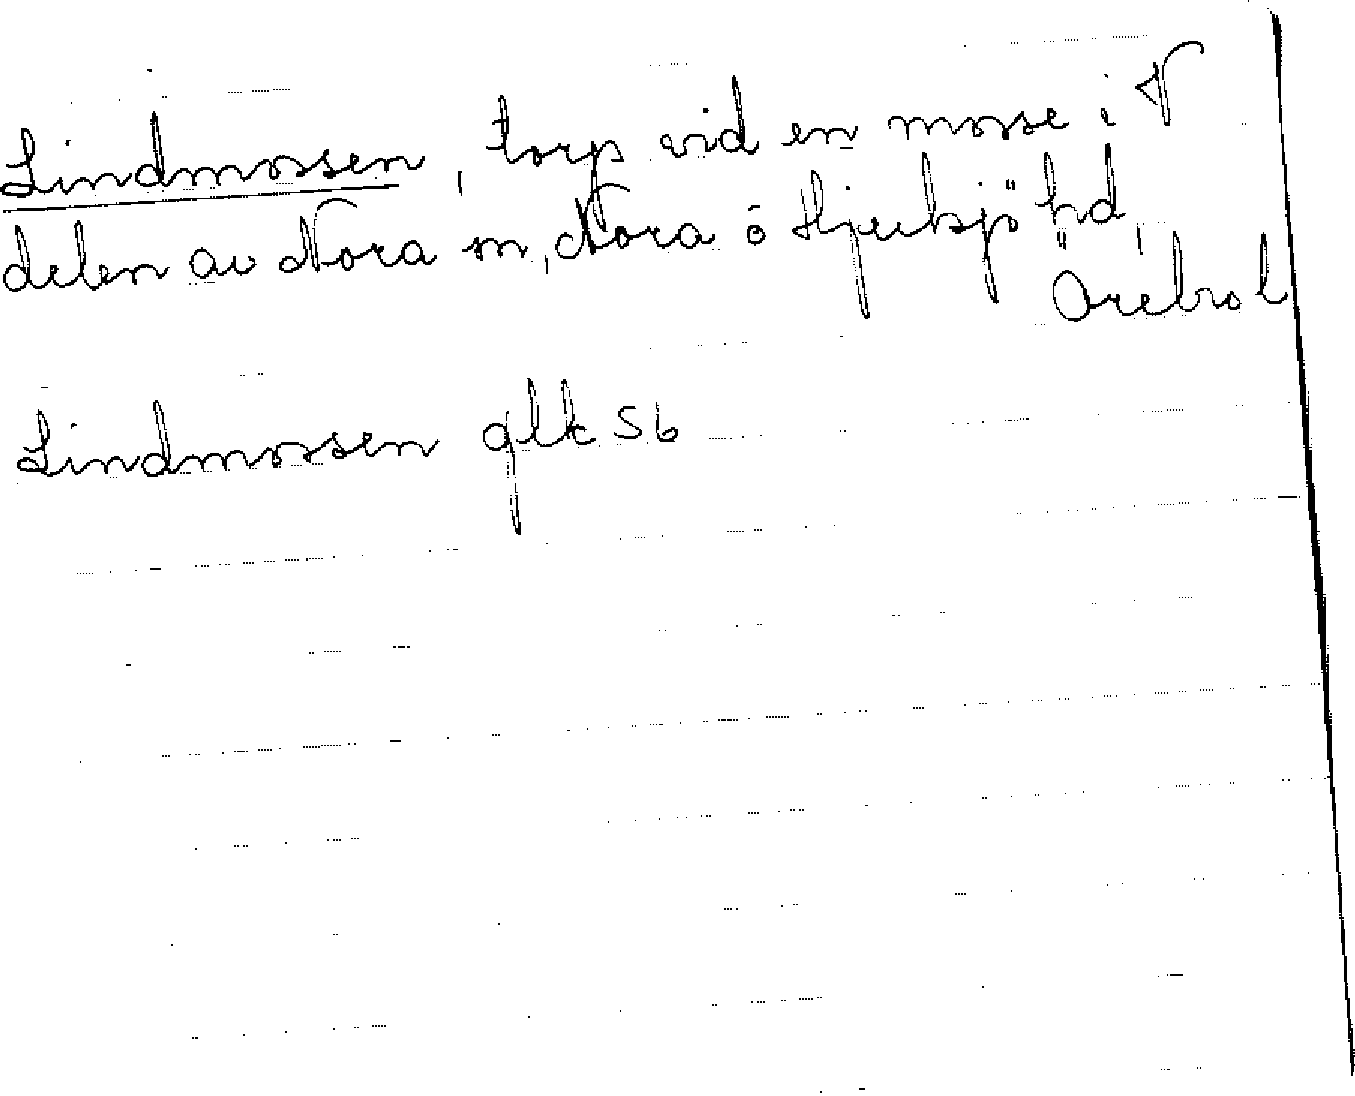 Lindmossen, torp vid en mosse i V
delen av Nora sn, Nora o Hjulsjö hd,
Örebro l
Lindmossen glk 56